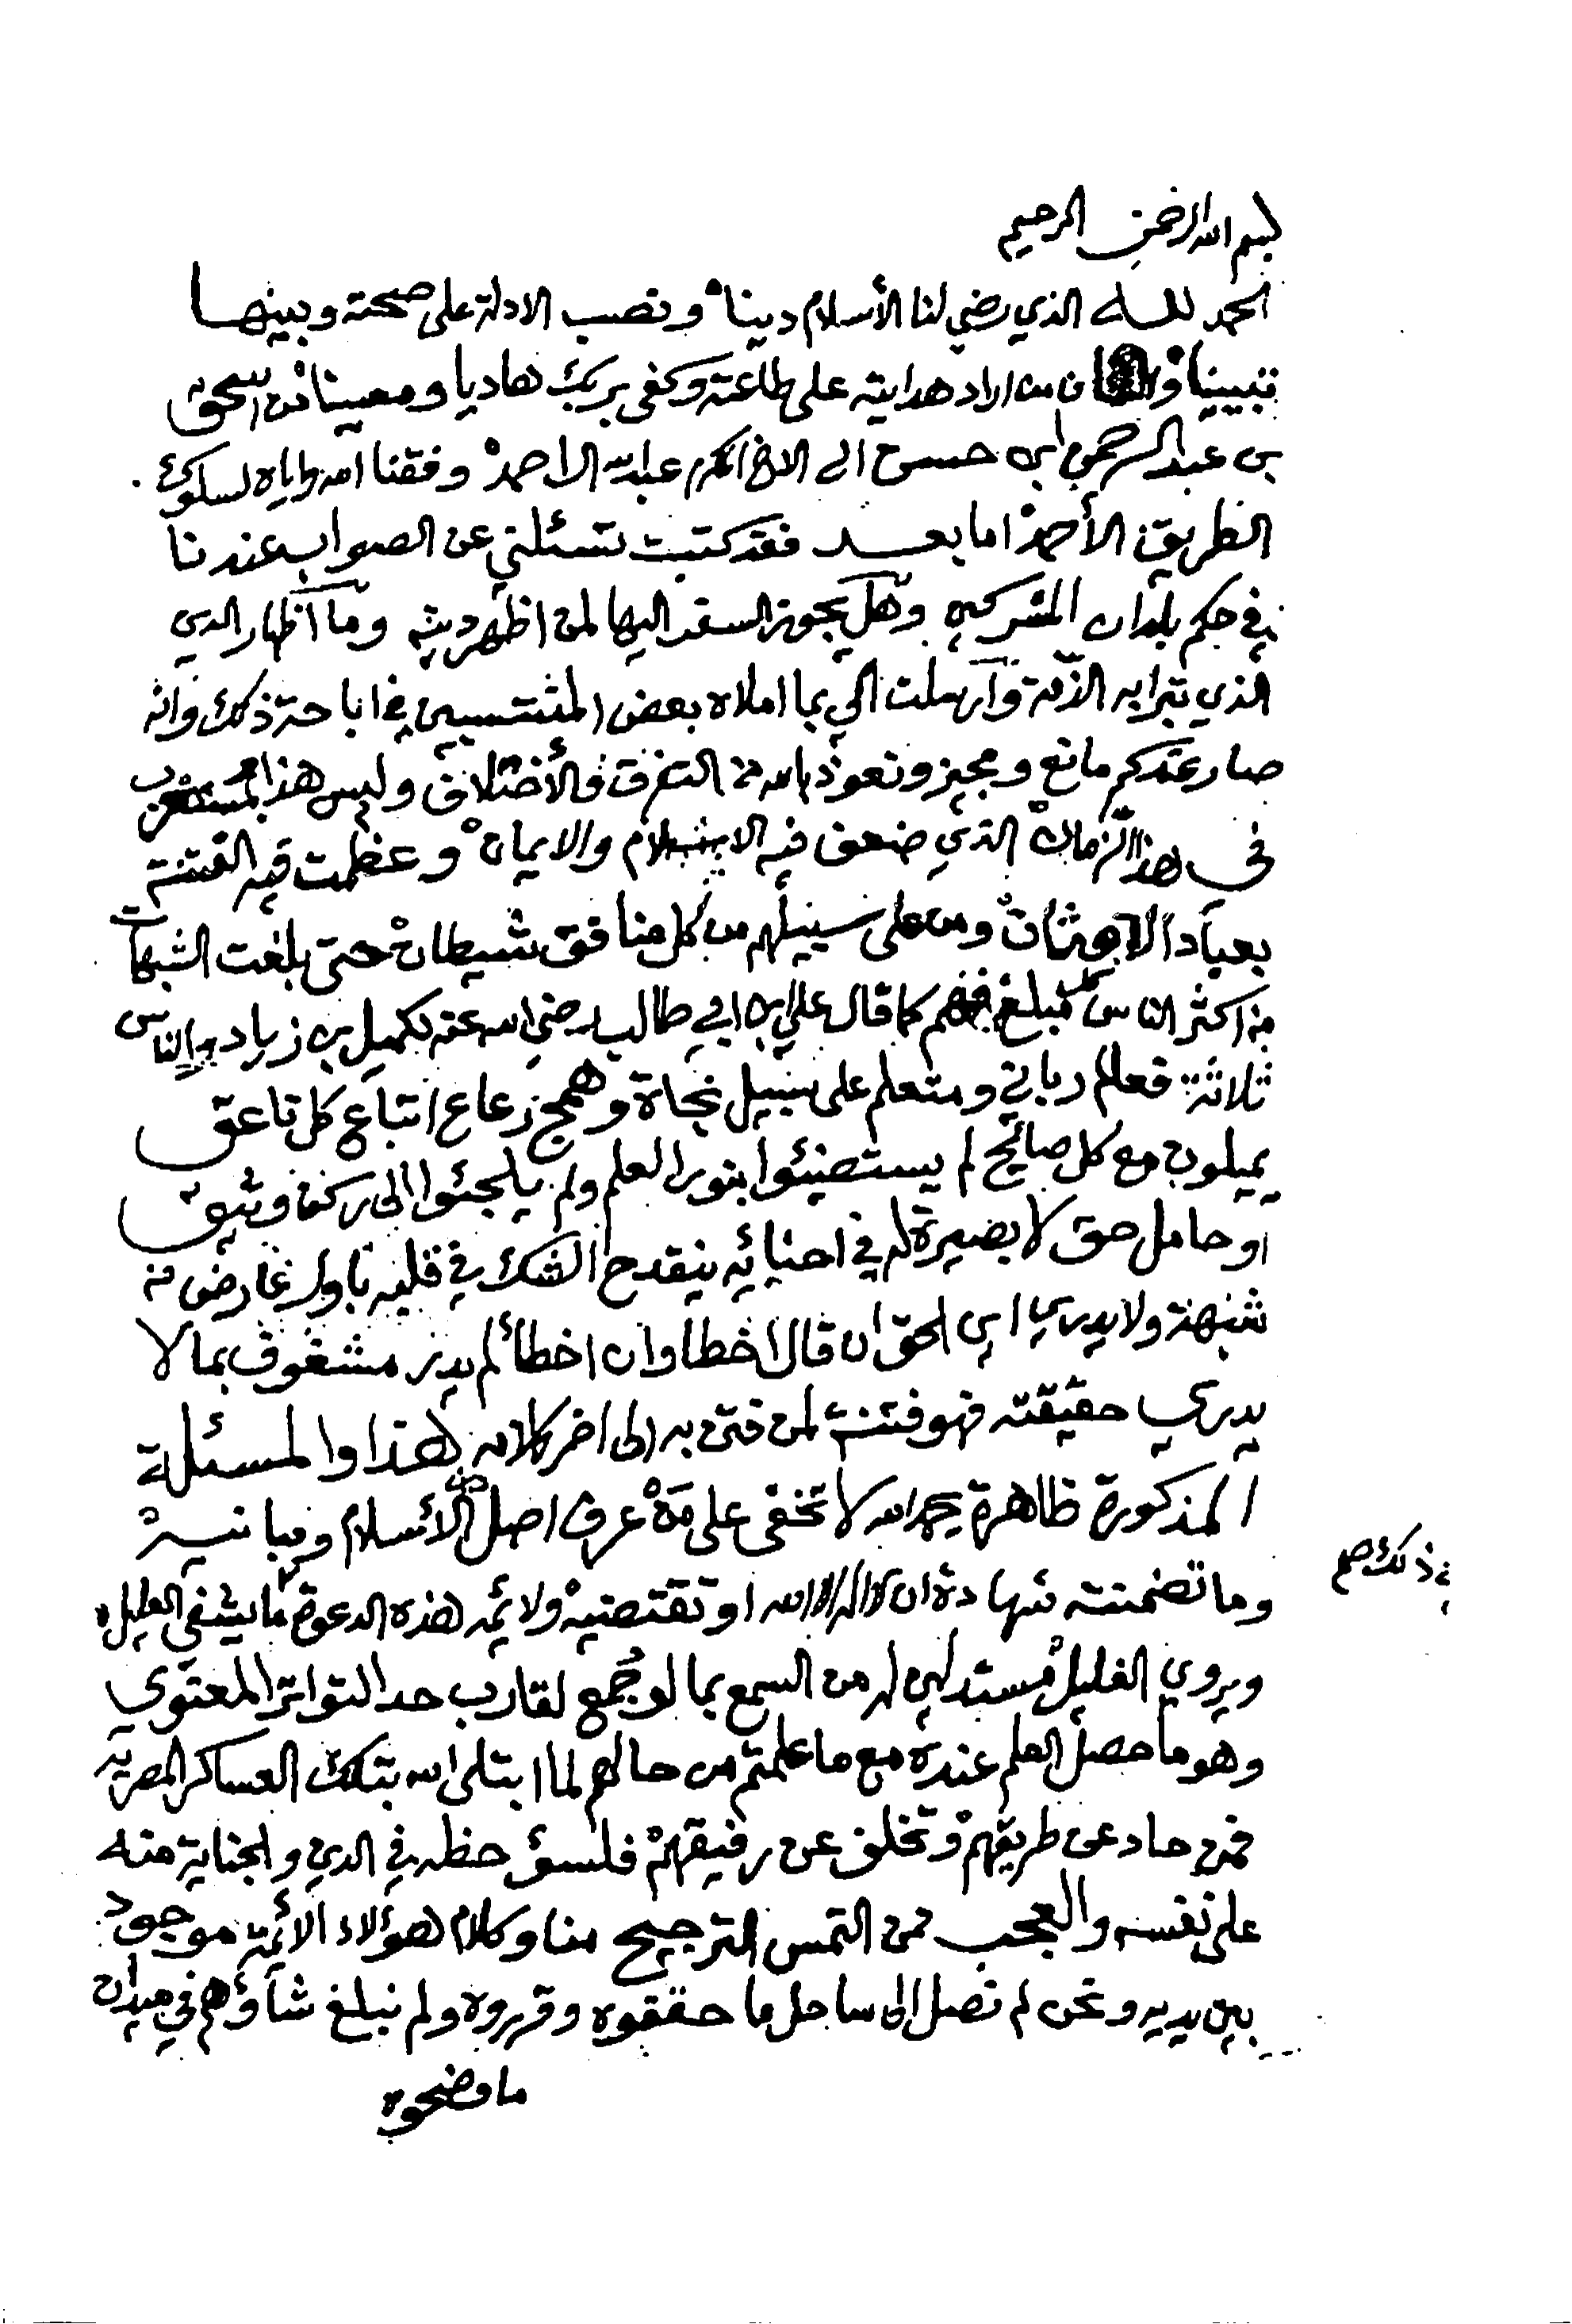 بسم الله الرحمن الرحيم
الحمد لله الذي رضي لنا الأسلام دينا ونصب الادلة على صحته وبينها
تبيينا و من اراد هدايته على طاعته وكفى بربك هاديا ومعينا من اسحق
بن عبد الرحمن ابن حسن الى الاخ المكرم عبد الله ال احمد وفقنا الله واياه لسلوك
الطريق الأحمد اما بعد فقد كتبت تسئلني عن الصواب عندنا
في حكم بلدان المشركين وهل يجوز السفر اليها لمن اظهر دينه وما اظهار الدين
الذي تبرا به الذمة وارسلت الي بما املاه بعض المنتسبين في اباحة ذلك وانه
صار عندكم مانع ومجيز ونعوذ بالله من التفرق والأختلاف وليس هذا بمستغرب
في هذا الزمان الذي ضعف فيه الاسلام والايمان وعظمت فيه الفتنة
بعباد الاوثان ومن على سبيلهم من كل منافق شيطان حتى بلغت الشبهات
من اكثر الناس كل مبلغ فهم كما قال علي ابن ابي طالب رضي الله عنه لكميل بن زياد والناس
ثلاثة فعالم رباني ومتعلم على سبيل نجاة وهمج رعاع اتباع كل ناعق
يميلون مع كل صائح لم يستضيئوا بنور العلم ولم يلجئوا الى ركن وثيق
او حامل حق لا بصيرة له في احنيائه ينقدح الشك في قلبه باول عارض من
شبهة ولا يدري اين الحق ان قال اخطا وان اخطأ لم يدر مشغوف بما لا
يدري حقيقته فهو فتنة لمن فتن به الى اخر كلامه هذا والمسئلة
المذكورة ظاهرة بحمد الله لا تخفى على من عرف اصل الأسلام ومبانيه
وما تضمنته شهادة ان لا اله الا الله او تقتضيه ولائمة هذه الدعوة ما يشفي العليل
في ذلك صح
ويروي الغليل مستدلين له من السمع بما لو جمع لقارب حد التواتر المعنوي
وهو ما حصل العلم عنده مع ما علمتم من حالهم لما ابتلى الله بتلك العساكر المصريه
فمن حاد عن طريقهم وتخلف عن رفيقهم فلسوء حظه في الدين والجناية منه
على نفسه والعجب ممن التمس الترجيح منا وكلام هؤلاء الائمة موجود
بين يديه ونحن لم نصل الى ساحل ما حققوه وقرروه ولم نبلغ شأوهم في ميدان
ما وضحوه